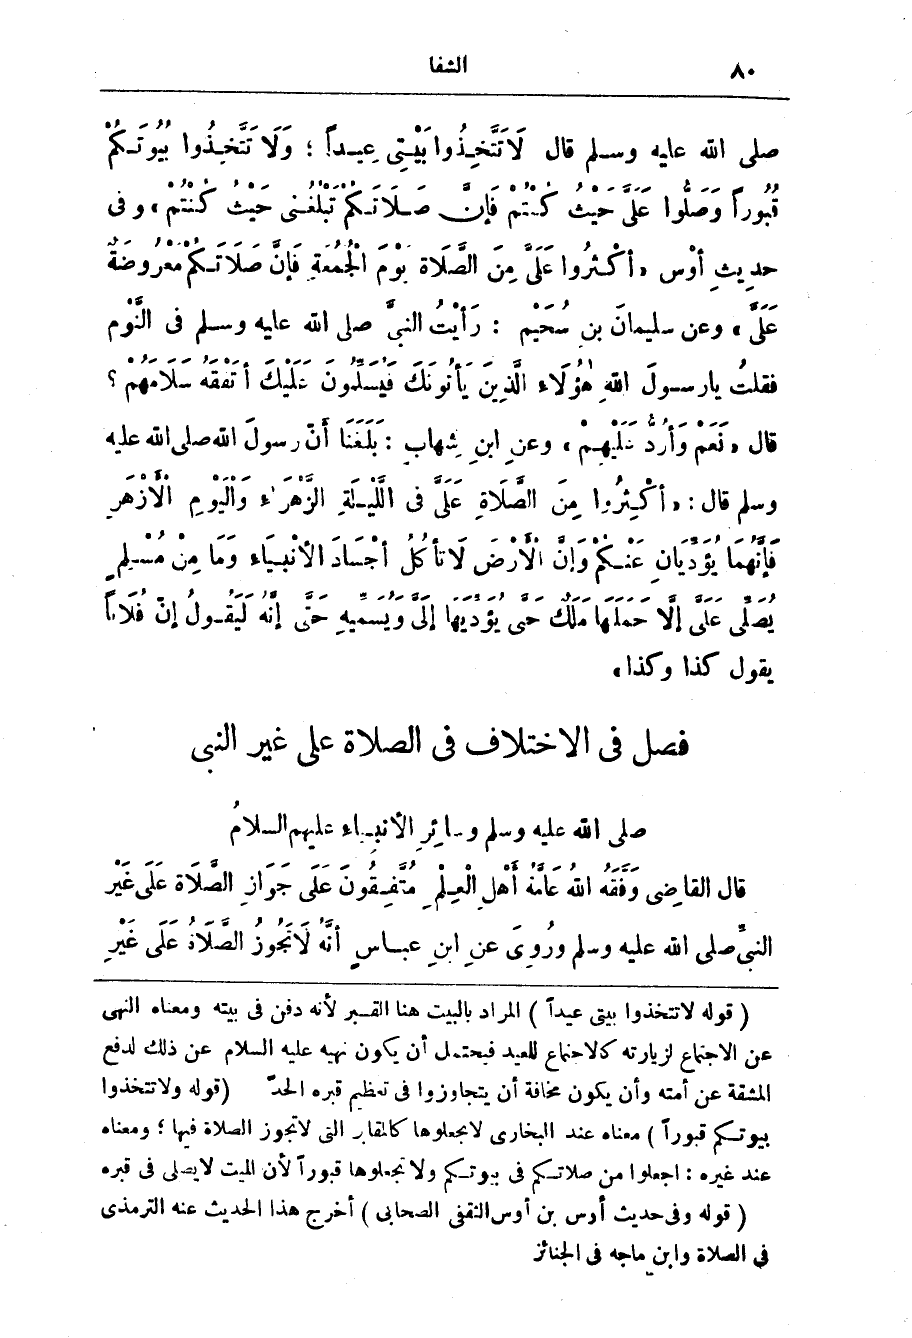 ٨٠
الشفا
صلى الله عليه وسلم قال لَاتَتَّخِذُوا بَيْتِى عِيداً ؛ وَلَا تَتَّخِذُوا بُيُوتَكُمْ
قُبُوراً وَصَلُّوا عَلَىَّ حَيْثُ كُنْتُمْ فَإِنَّ صَلَاتَكُمْ تَبْلُغُنِى حَيْثُ كُنْتُمْ » وفى
حديثِ أوْس « أكْثِرُوا عَلَىَّ مِنَ الصَّلَاة يَوْمَ الْجُمُعَةِ فَإِنَّ صَلَاتَكُمْ مَعْرُوضَةٌ
عَلَىَّ » وعن سليمانَ بن سُحَيْم : رَأيْتُ النبىَّ صلى الله عليه وسلم فى النَّوْم
فقلتُ يارسولَ اللهِ هٰؤُلَاءِ الَّذِينَ يَأتُونَكَ فَيُسَلِّمُونَ عَلَيْكَ أتَفْقَهُ سَلَامَهُمْ ؟
قال « نَعَمْ وَأرُدُّ عَلَيْهِمْ » وعنِ ابنِ شِهابٍ : بَلَغَنَا أنّ رسولَ الله صلى الله عليه
وسلم قال : « أكْثِرُوا مِنَ الصَّلَاةِ عَلَىَّ فى اللَّيْلَةِ الزَّهْرَاءِ وَالْيَوْمِ الْأزْهَرِ
فَإِنَّهُمَا يُؤَدِّيَانِ عَنْكُمْ وَإنَّ الْأرْضَ لَا تأكُلُ أجْسَادَ الأنْبِيَاءِ وَمَا مِنْ مُسْلِمٍ
يُصَلِّى عَلَىَّ إلَّا حَمَلَهَا مَلَكٌ حَتَّى يُؤَدِّيَهَا إلَىَّ وَيُسَمِّيهِ حَتَّى إنَّهُ لَيَقُولُ إنّ فُلَاناً
يقول كذا وكذا »
فصل فى الاختلاف فى الصلاة على غير النبى
صلى الله عليه وسلم وسائِرِ الأنبياء عليهم السلامُ
قال القاضِى وَفَّقَهُ اللهُ عَامَّةُ أهْلِ الْعِلْمِ مُتَّفِقُونَ عَلَى جَوَازِ الصَّلَاة عَلَى غَيْرِ
النبىِّ صلى الله عليه وسلم ورُوِىَ عنِ ابنِ عباسٍ أنَّهُ لَا تَجُوزُ الصَّلَاةُ عَلَى غَيْرِ
( قوله لا تتخذوا بيتى عيداً ) المراد بالبيت هنا القبر لأنه دفن فى بيته ومعناه النهى
عن الاجتماع لزيارته كالاجتماع للعيد فيحتمل أن يكون نهيه عليه السلام عن ذلك لدفع
المشقة عن أمته وأن يكون مخافة أن يتجاوزوا فى تعظيم قبره الحدّ (قوله ولا تتخذوا
بيوتكم قبوراً ) معناه عند البخارى لا تجعلوها كالمقابر التى لا تجوز الصلاة فيها ؛ ومعناه
عند غيره : اجعلوا من صلاتكم فى بيوتكم ولا تجعلوها قبوراً لأن الميت لا يصلى فى قبره
( قوله وفى حديث أوس بن أوس الثقفى الصحابى ) أخرج هذا الحديث عنه الترمذى
فى الصلاة وابن ماجه فى الجنائز